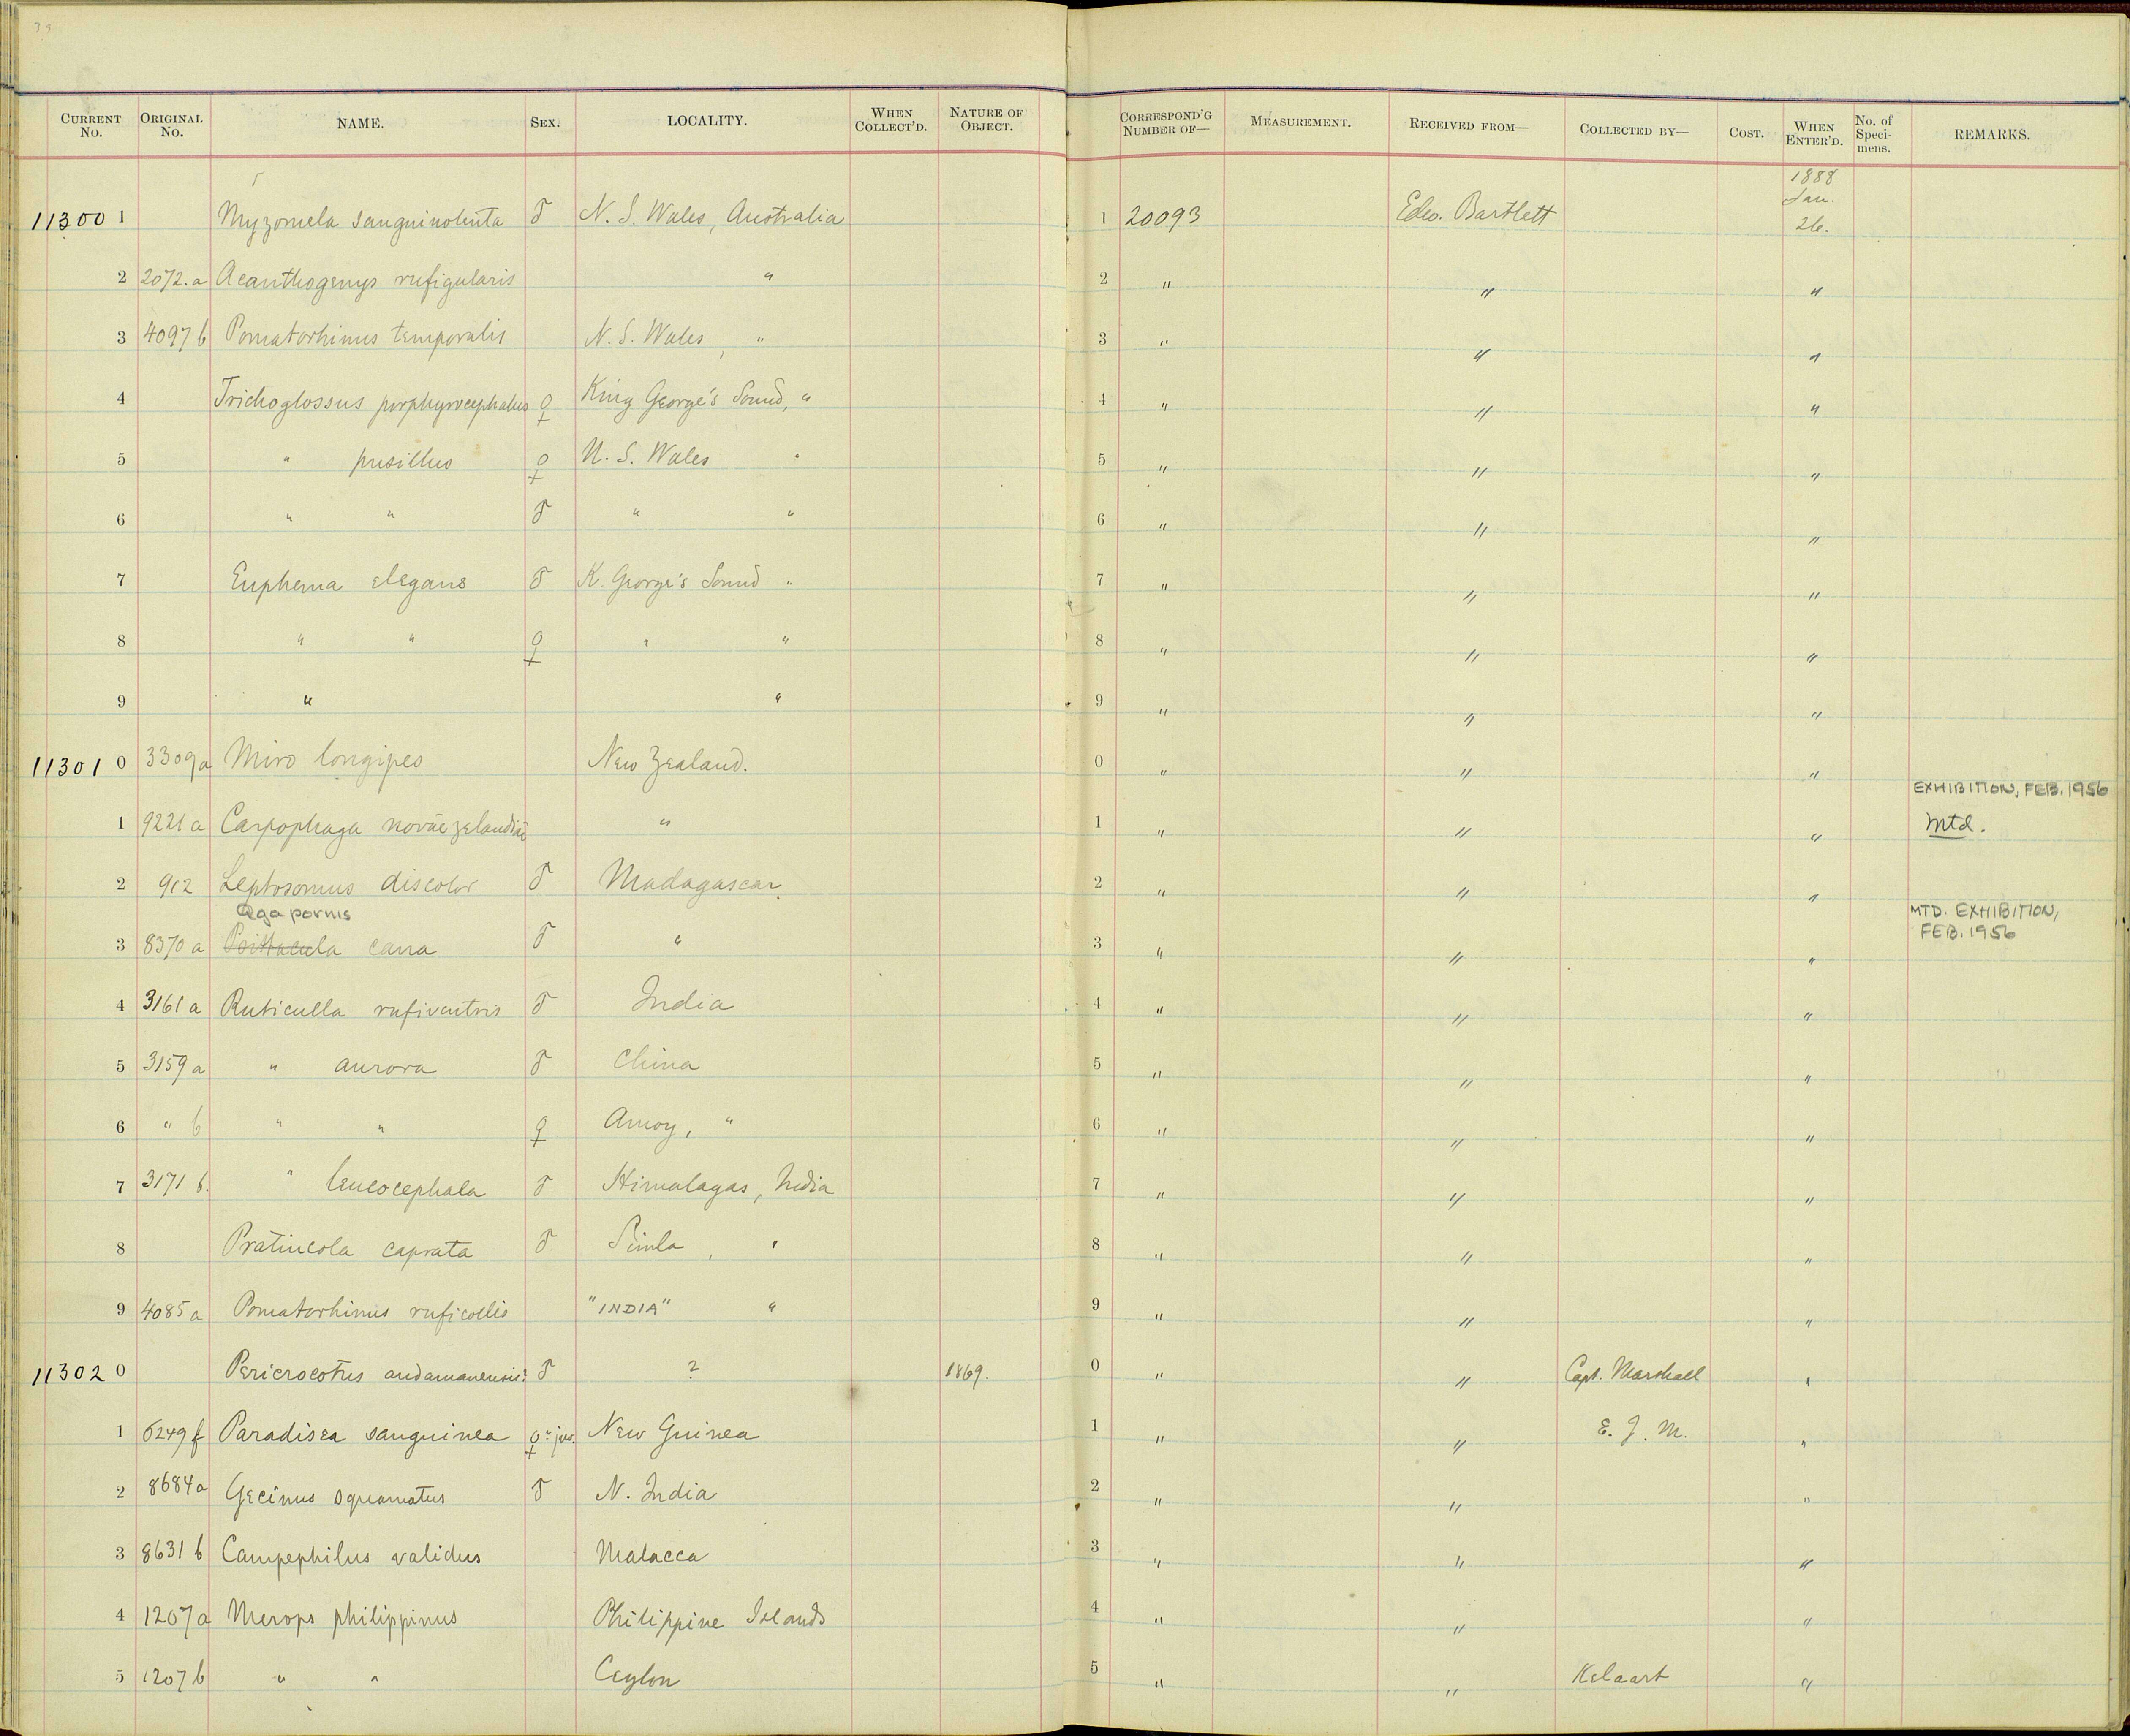 CURRENT No. ORIGINAL No. NAME. SEX. LOCALITY. WHEN COLLECT'D. NATURE OF OBJECT. CORRESPOND'G NUMBER OF— MEASUREMENT. RECEIVED FROM— COLLECTED BY— COST. WHEN ENTER'D. No. of Speci-mens. REMARKS.
11300 1 Myzomela sanguinolenta ♂ N. S. Wales, Australia 1 20093 Edw. Bartlett 1888 Jan. 26.
2 2072.a Acanthogenys rufigularis " 2 " " "
3 4097 b Pomatorhinus temporalis N. S. Wales, " 3 " " "
4 Trichoglossus porphyrocephalus ♀ King George's Sound, " 4 " " "
5 " pusillus ♀ N. S. Wales " 5 " " "
6 " " ♂ " " 6 " " "
7 Euphema elegans ♂ K. George's Sound " 7 " " "
8 " " ♀ " " 8 " " "
9 " " 9 " " "
11301 0 3309a Miro longipes New Zealand. 0 " " "
EXHIBITION, FEB. 1956
1 9221 a Carpophaga novae zelandiae " 1 " " " Mtd.
2 912 Leptosomus discolor ♂ Madagascar 2 " " "
Agapornis MTD. EXHIBITION, FEB. 1956
3 8370 a Psittacula cana ♂ " 3 " " "
4 3161 a Ruticulla rufiventris ♂ India 4 " " "
5 3159 a " aurora ♂ China 5 " " "
6 " b " " ♀ Amoy, " 6 " " "
7 3171 b. " leucocephala ♂ Himalayas, India 7 " " "
8 Pratincola caprata ♂ Simla, " 8 " " "
9 4085 a Pomatorhinus ruficollis "INDIA" " 9 " " "
11302 0 Pericrocotus andamanensis? ♂ ? 1869. 0 " " Capt. Marshall "
1 6249 f Paradisea sanguinea ♀ juv. New Guinea 1 " " E. J. M. "
2 8684a Gecinus squamatus ♂ N. India 2 " " "
3 8631 b Campephilus validus Malacca 3 " " "
4 1207a Merops philippinus Philippine Islands 4 " " "
5 1207 b " " Ceylon 5 " " Kelaart "